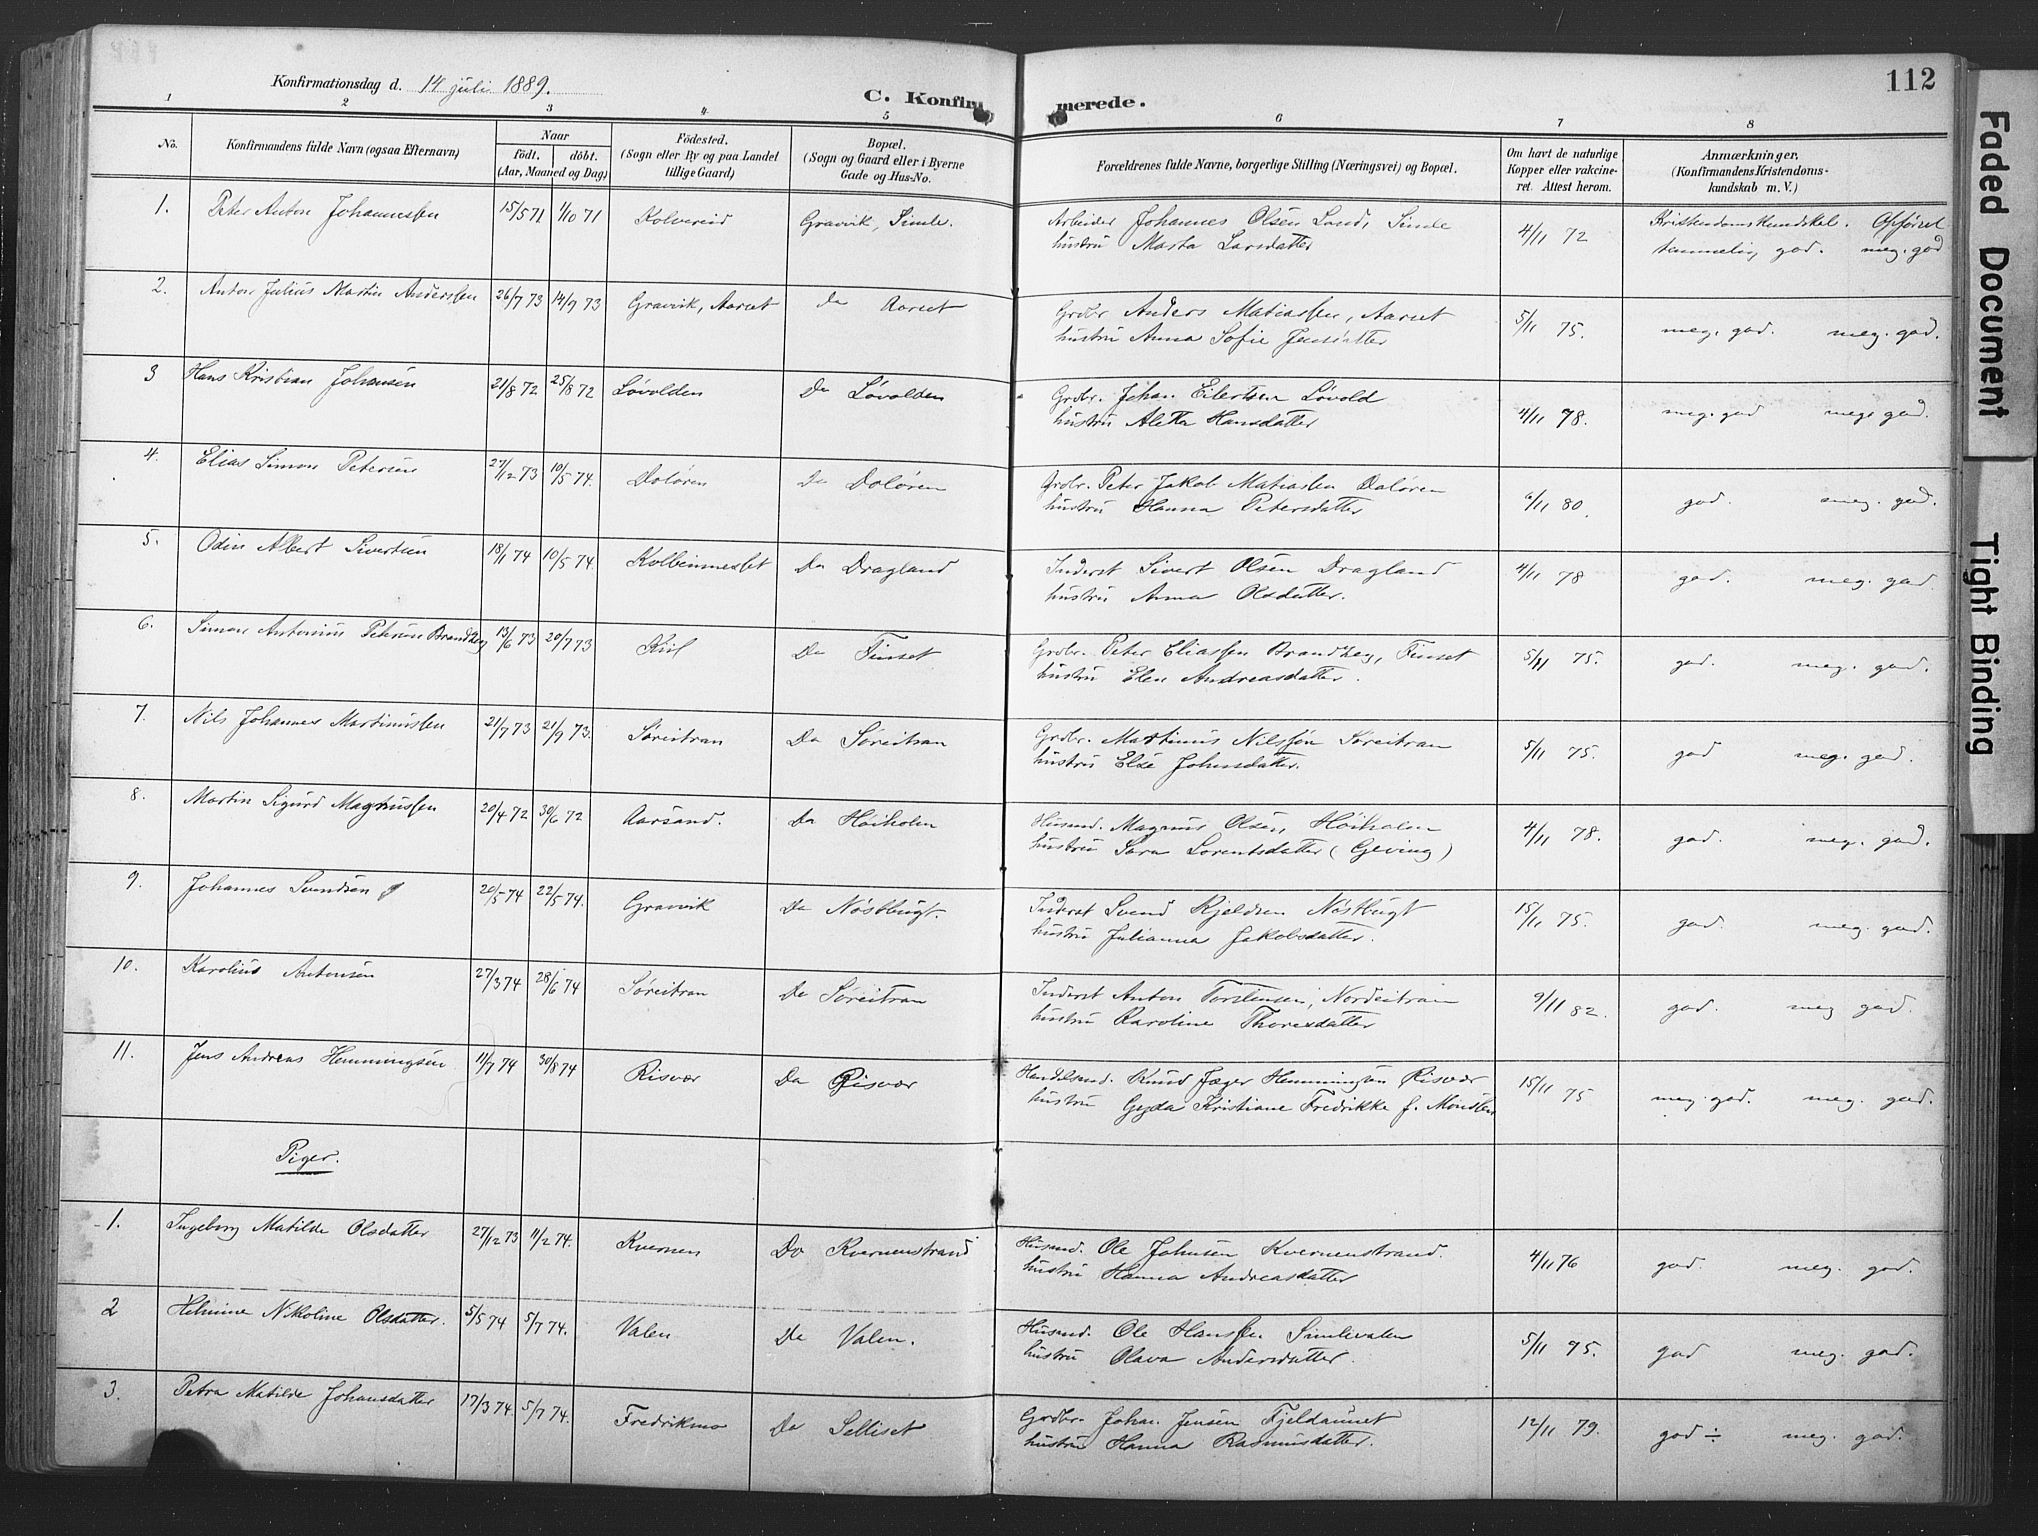 112
Konfirmationsdag d. 14 juli 1889.
C. Konfirmerede.
1 2 3 4 5 6 7 8
No. Konfirmandens fulde Navn (ogsaa Efternavn) Naar födt. döbt. (Aar, Maaned og Dag) Födested. (Sogn eller By og paa Landet tillige Gaard) Bopæl. (Sogn og Gaard eller i Byerne Gade og Hus-No. Forældrenes fulde Navne, borgerlige Stilling (Næringsvei) og Bopæl. Om havt de naturlige Kopper eller vakcineret. Attest herom. Anmærkninger. (Konfirmandens Kristendomskundskab m. V.)
1. Peter Anton Johannessen 15/5 71 1/10 71 Kolvereid Gravik, Simle. Arbeider Johannes Olsen Sand, Simle 4/11 72 Kristendomskundskab. Opførsel
hustru Marta Larsdatter temmelig god. meg. god
2. Anton Julius Martin Anderssen 26/7 73 14/9 73 Gravik, Aarset Do Aarset Grdbr Anders Matiassen, Aarset 5/11 75. meg. god. meg. god.
hustru Anna Sofie Jensdatter
3 Hans Kristian Johansen 21/8 72 25/8 72 Løvolden Do Løvolden Grdbr. Johan Eilertsen Løvold 4/11 78. meg. god meg. god.
hustru Aletta Hansdatter
4. Elias Simon Petersen 27/12 73 10/5 74. Doløren Do Doløren Grdbr. Peter Jakob Matiassen Doløren 6/11 80. god. meg. god.
hustru Hanna Petersdatter
5. Odin Albert Sivertsen 18/1 74 10/5 74. Kolbeinmoset Do Dragland Inderst Sivert Olsen Dragland 4/11 78 god. meg. god
hustru Anna Olsdatter.
6. Simon Antonius Petersen Brandtzeg 13/6 73 20/7 73 Kiil Do Finset Grdbr. Peter Eliassen Brandtzeg, Finset 5/11 75. god. meg. god.
hustru Elen Andreasdatter.
7. Nils Johannes Martinussen 21/7 73 21/9 73. Søreitran Do Søreitran Grdbr. Martinus Nilssøn Søreitran 5/11 75. god meg. god.
hustru Else Johnsdatter.
8. Martin Sigurd Magnussen 20/4 72 30/6 72 Aarsand. Do Høiholm Husmd. Magnus Olsen, Høiholm 4/11 78. god. meg. god.
hustru Sara Lorentsdatter (Geving)
9. Johannes Svendsen 20/5 74 22/5 74. Gravvik Do Nøstbugt. Inderst Svend Kjeldsen Nøstbugt 15/11 75. god. meg. god.
hustru Julianna Jakobsdatter.
10. Karolius Antonsen 27/3 74 28/6 74 Søreitran Do Søreitran Inderst Anton Torstensen, Nordeitran 9/11 82. god. meg god.
hustru Karoline Thoresdatter
11. Jens Andreas Hemmingsen 11/7 74 30/8 74 Risvær Do Risvær Handelsmd. Knud Jæger Hemmingsen Risvær 15/11 75 meg. god. meg. god.
hustru Gyda Kristiane Fredrikke f. Monsen
Piger.
1. Ingeborg Matilde Olsdatter 27/12 73 11/2 74. Kvernen Do Kvernenstrand Husmd. Ole Johnsen Kvernenstrand. 4/11 76 god. meg. god.
hustru Hanna Andreasdatter
2 Helmine Nikoline Olsdatter. 5/5 74 5/7 74. Valen Do Valen. Husmd. Ole Hanssen Simlevalen 5/11 75. god meg. god.
hustru Olava Andersdatter.
3. Petra Matilde Johansdatter 17/3 74. 5/7 74. Fredrikmo Do Selliset Grdbr. Johan Jensen Fjeldaunet 12/11 79. god ÷ meg. god.
hustru Hanna Rasmusdatter.
Faded Document
Tight Binding